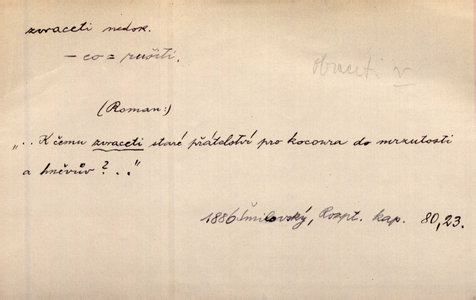 zvraceti nedok.
— co = rušiti.
obraceti v
(Roman:)
„.. K čemu zvraceti staré přátelství pro kocoura do mrzutosti
a hněvův? .. "
1886 Šmilovský, Rozpt. kap. 80,23.